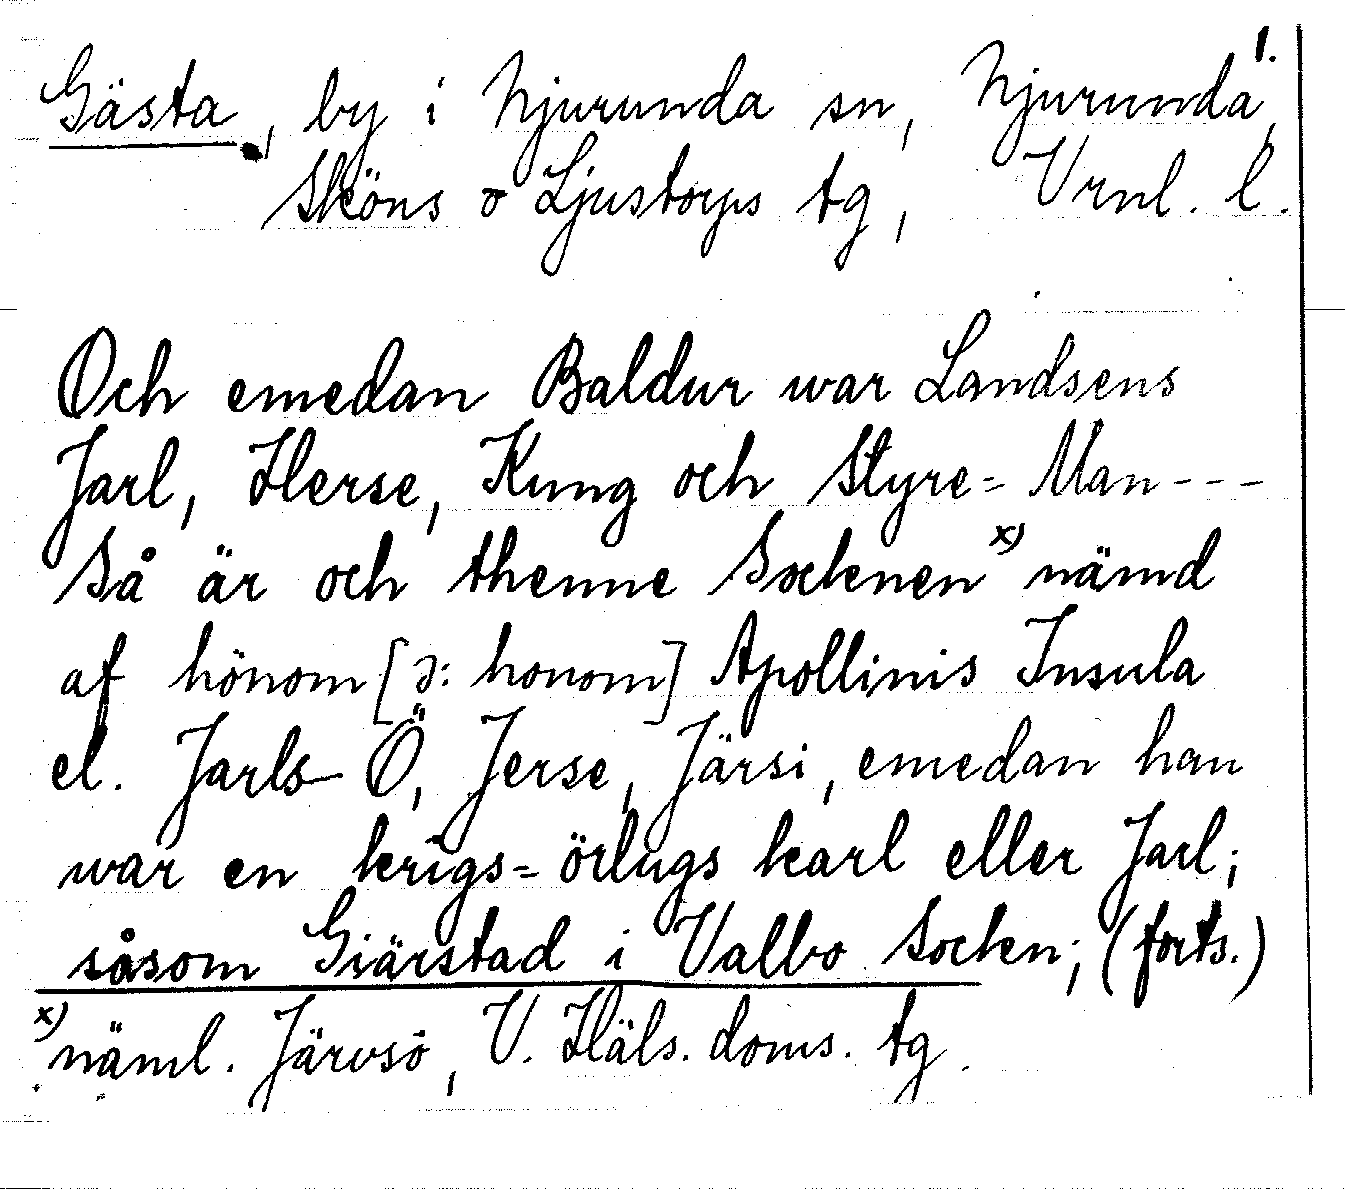 1.
Gästa, by i Njurunda sn, Njurunda,
Sköns o Ljustorps tg, Vrnl. l.
Och emedan Baldur war Landsens
Jarl, Herse, Kung och Styre= Man---
Så är och thenne Socknen x) nämd
af hönom [ɔ: honom] Apollinis Insula
el. Jarls Ö, Jerse, Järsi, emedan han
war en krigs= örlugs karl eller Jarl;
såsom Giärstad i Valbo Socken; (forts.)
x) näml. Järvsö, V. Häls. doms. tg.